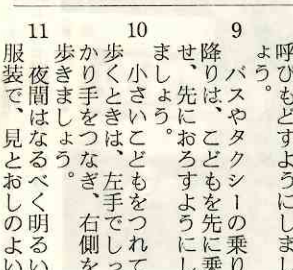 呼びもどすようにしまし
ょう。
9 バスやタクシーの乗り
降りは、こどもを先に乗
せ、先におろすようにし
ましょう。
10 小さいこどもをつれて
歩くときは、左手でしっ
かり手をつなぎ、右側を
歩きましょう。
11 夜間はなるべく明るい
服装で、見とおしのよい